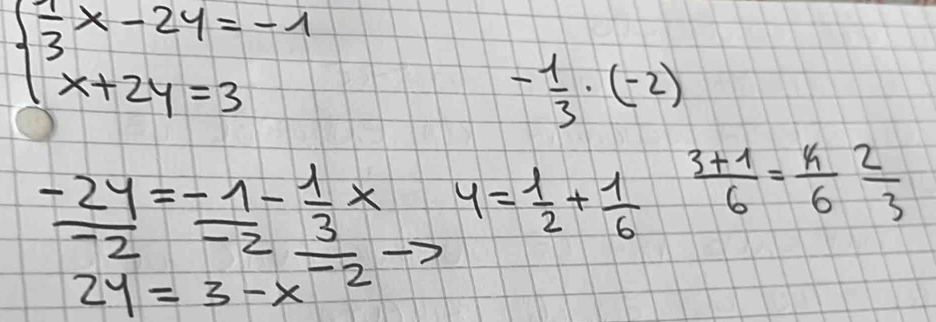 { 1/3 x - 2y = -1
x + 2y = 3
- 1/3 · (-2)
-2y/-2 = -1/-2 - 1/3 x/-2 →
y = 1/2 + 1/6
3+1/6 = 4/6 2/3
2y = 3 - x